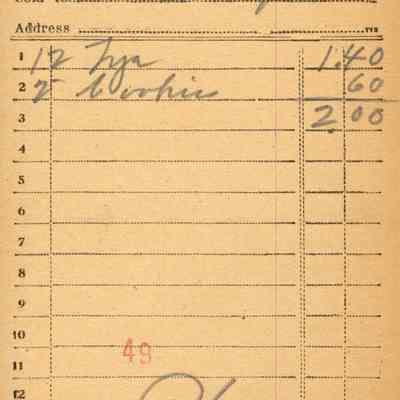 Sold to
Address
1 12 1.40
2 2 Cookies 60
3 2.00
4
5
6
7
8
9
10
49
11
12